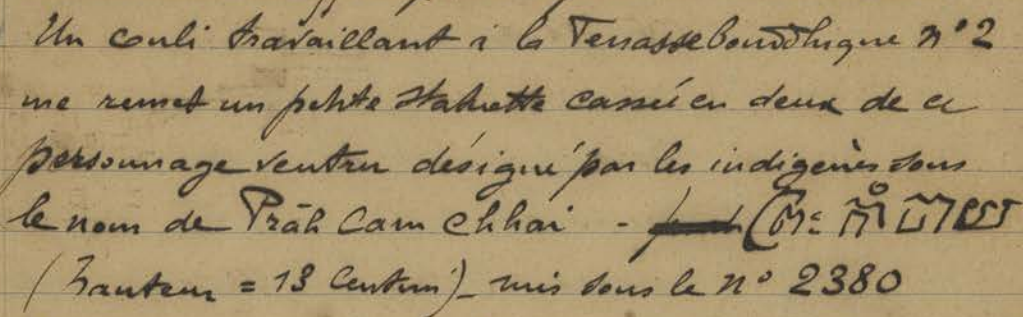 Un couli travaillant à la Terrasse bouddhique n° 2
me remet un petite statuette cassée en deux de ce
personnage ventru désigné par les indigènes sous
le nom de Prāh Cam Chhai - ព្រះ
(hauteur = 13 Centim) - mis sous le n° 2380